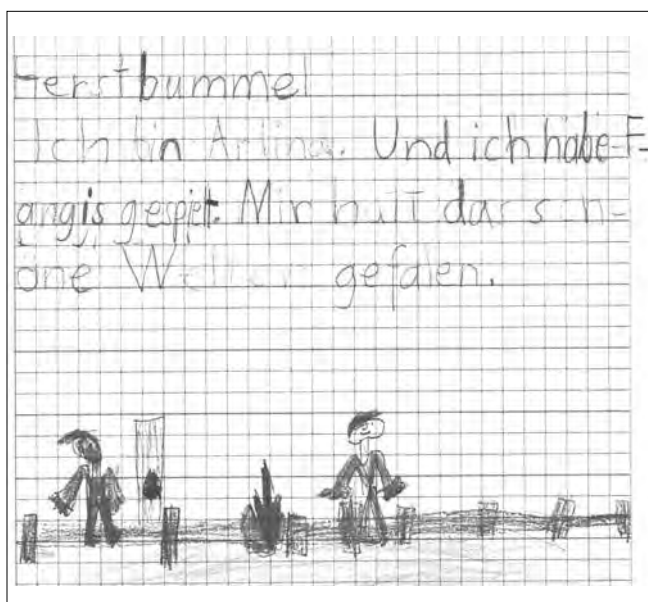 Herstbummel
Ich bin Arlina. Und ich habe F-
angis gespielt. Mir hatt dar sch-
öne gefalen.